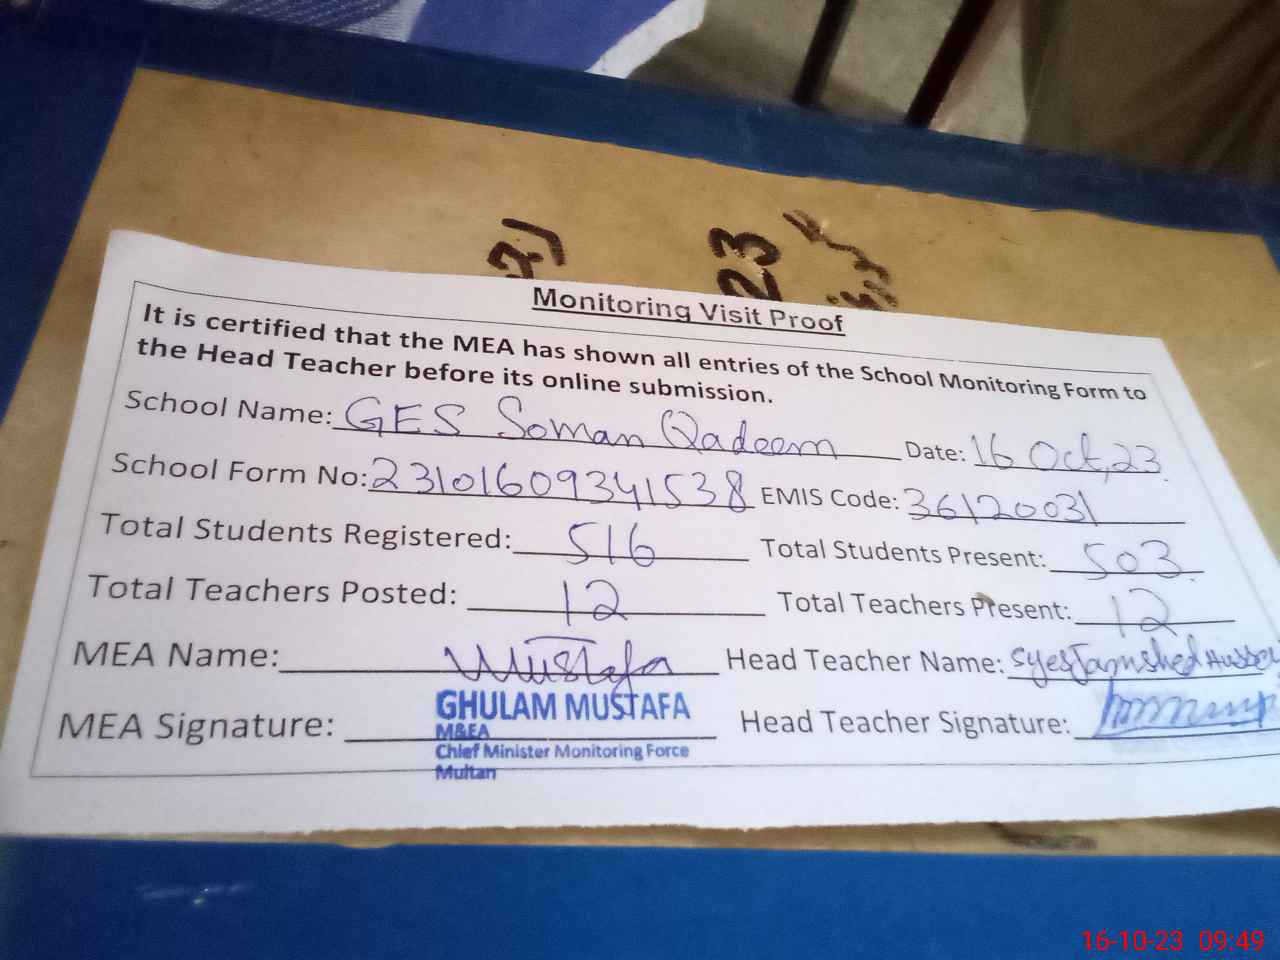 23
Monitoring Visit Proof
It is certified that the MEA has shown all entries of the School Monitoring Form to
the Head Teacher before its online submission.
School Name: GES Soman Qadeem Date: 16 Oct, 23
School Form No: 23101609341538 EMIS Code: 36120031
Total Students Registered: 516 Total Students Present: 503
Total Teachers Posted: 12 Total Teachers Present: 12
MEA Name: Mustafa Head Teacher Name: Syed Jamshed
MEA Signature: Head Teacher Signature:
GHULAM MUSTAFA
M&EA
Chief Minister Monitoring Force
Multan
16-10-23 09:49